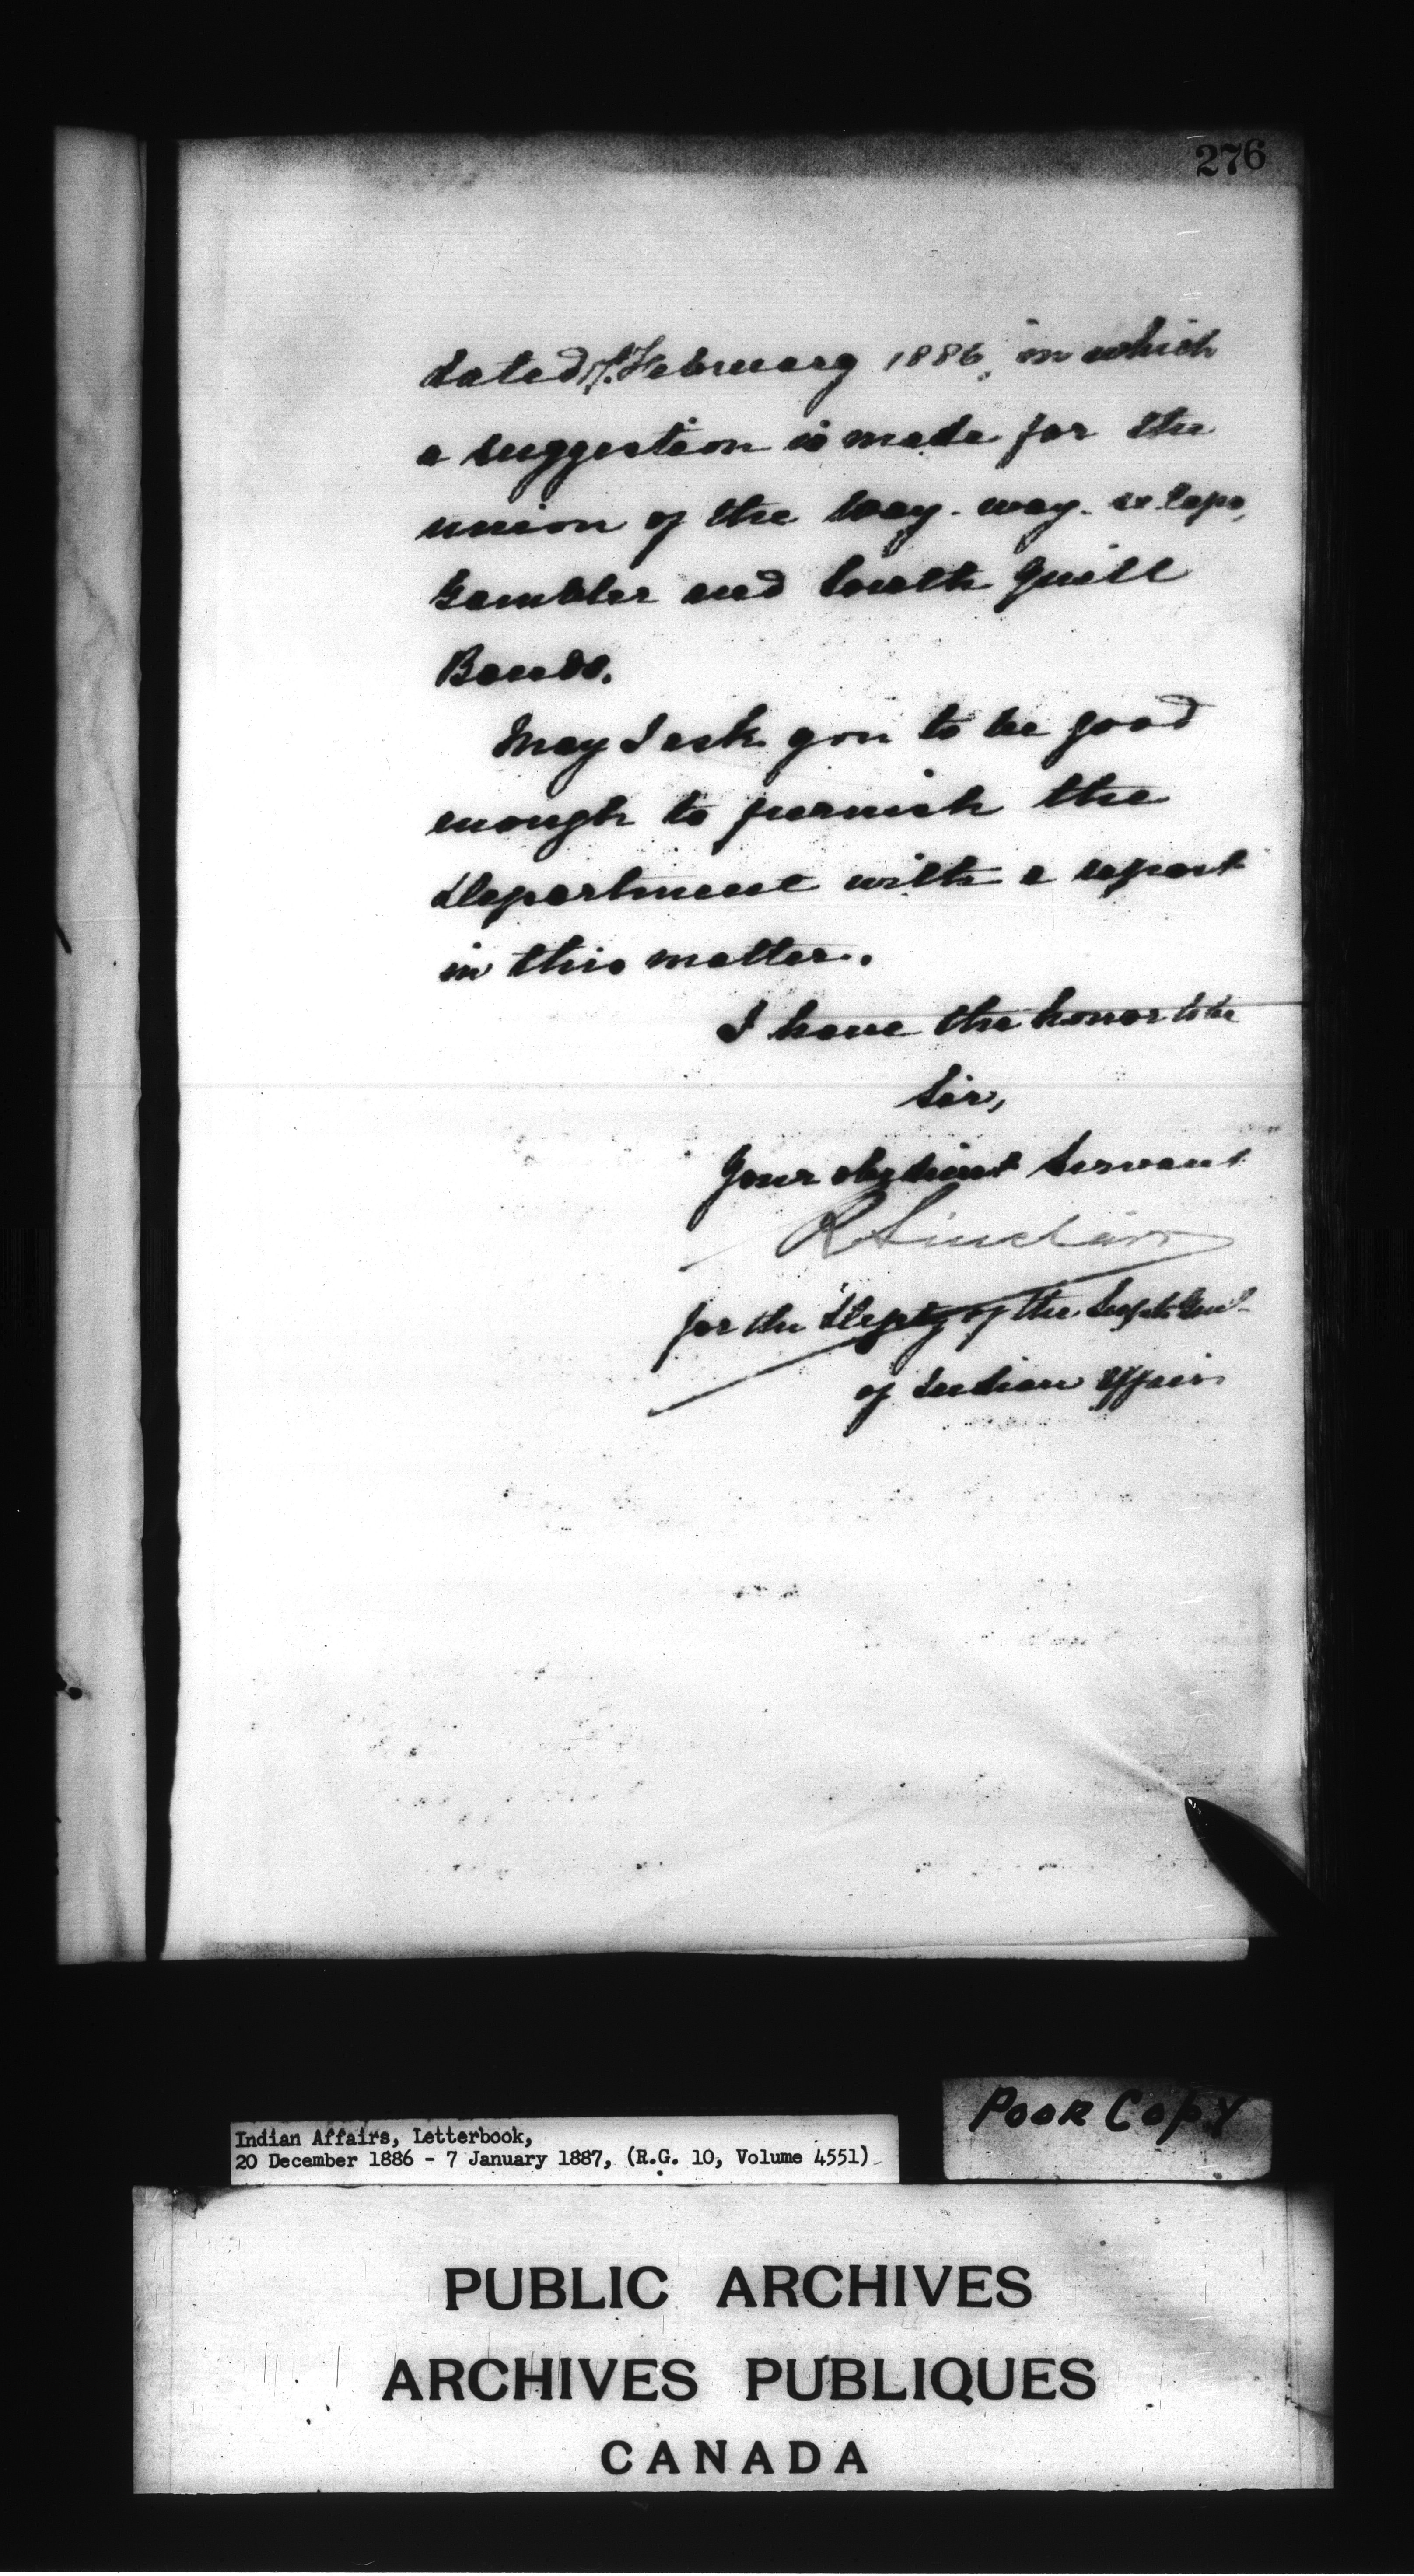 276
dated 17. February 1886, in which
a suggestion is made for the
union of the Way-way-se Capo,
Gambler and South Quill
Bands.
May I ask you to be good
enough to furnish the
Department with a report
in this matter.
I have the honor to be
Sir,
Your obedient Servant
R Sinclair
for the Depty of the Supt. Genl.
of Indian Affairs
Poor Copy
Indian Affairs, Letterbook,
20 December 1886 - 7 January 1887, (R.G. 10, Volume 4551)
PUBLIC ARCHIVES
ARCHIVES PUBLIQUES
CANADA